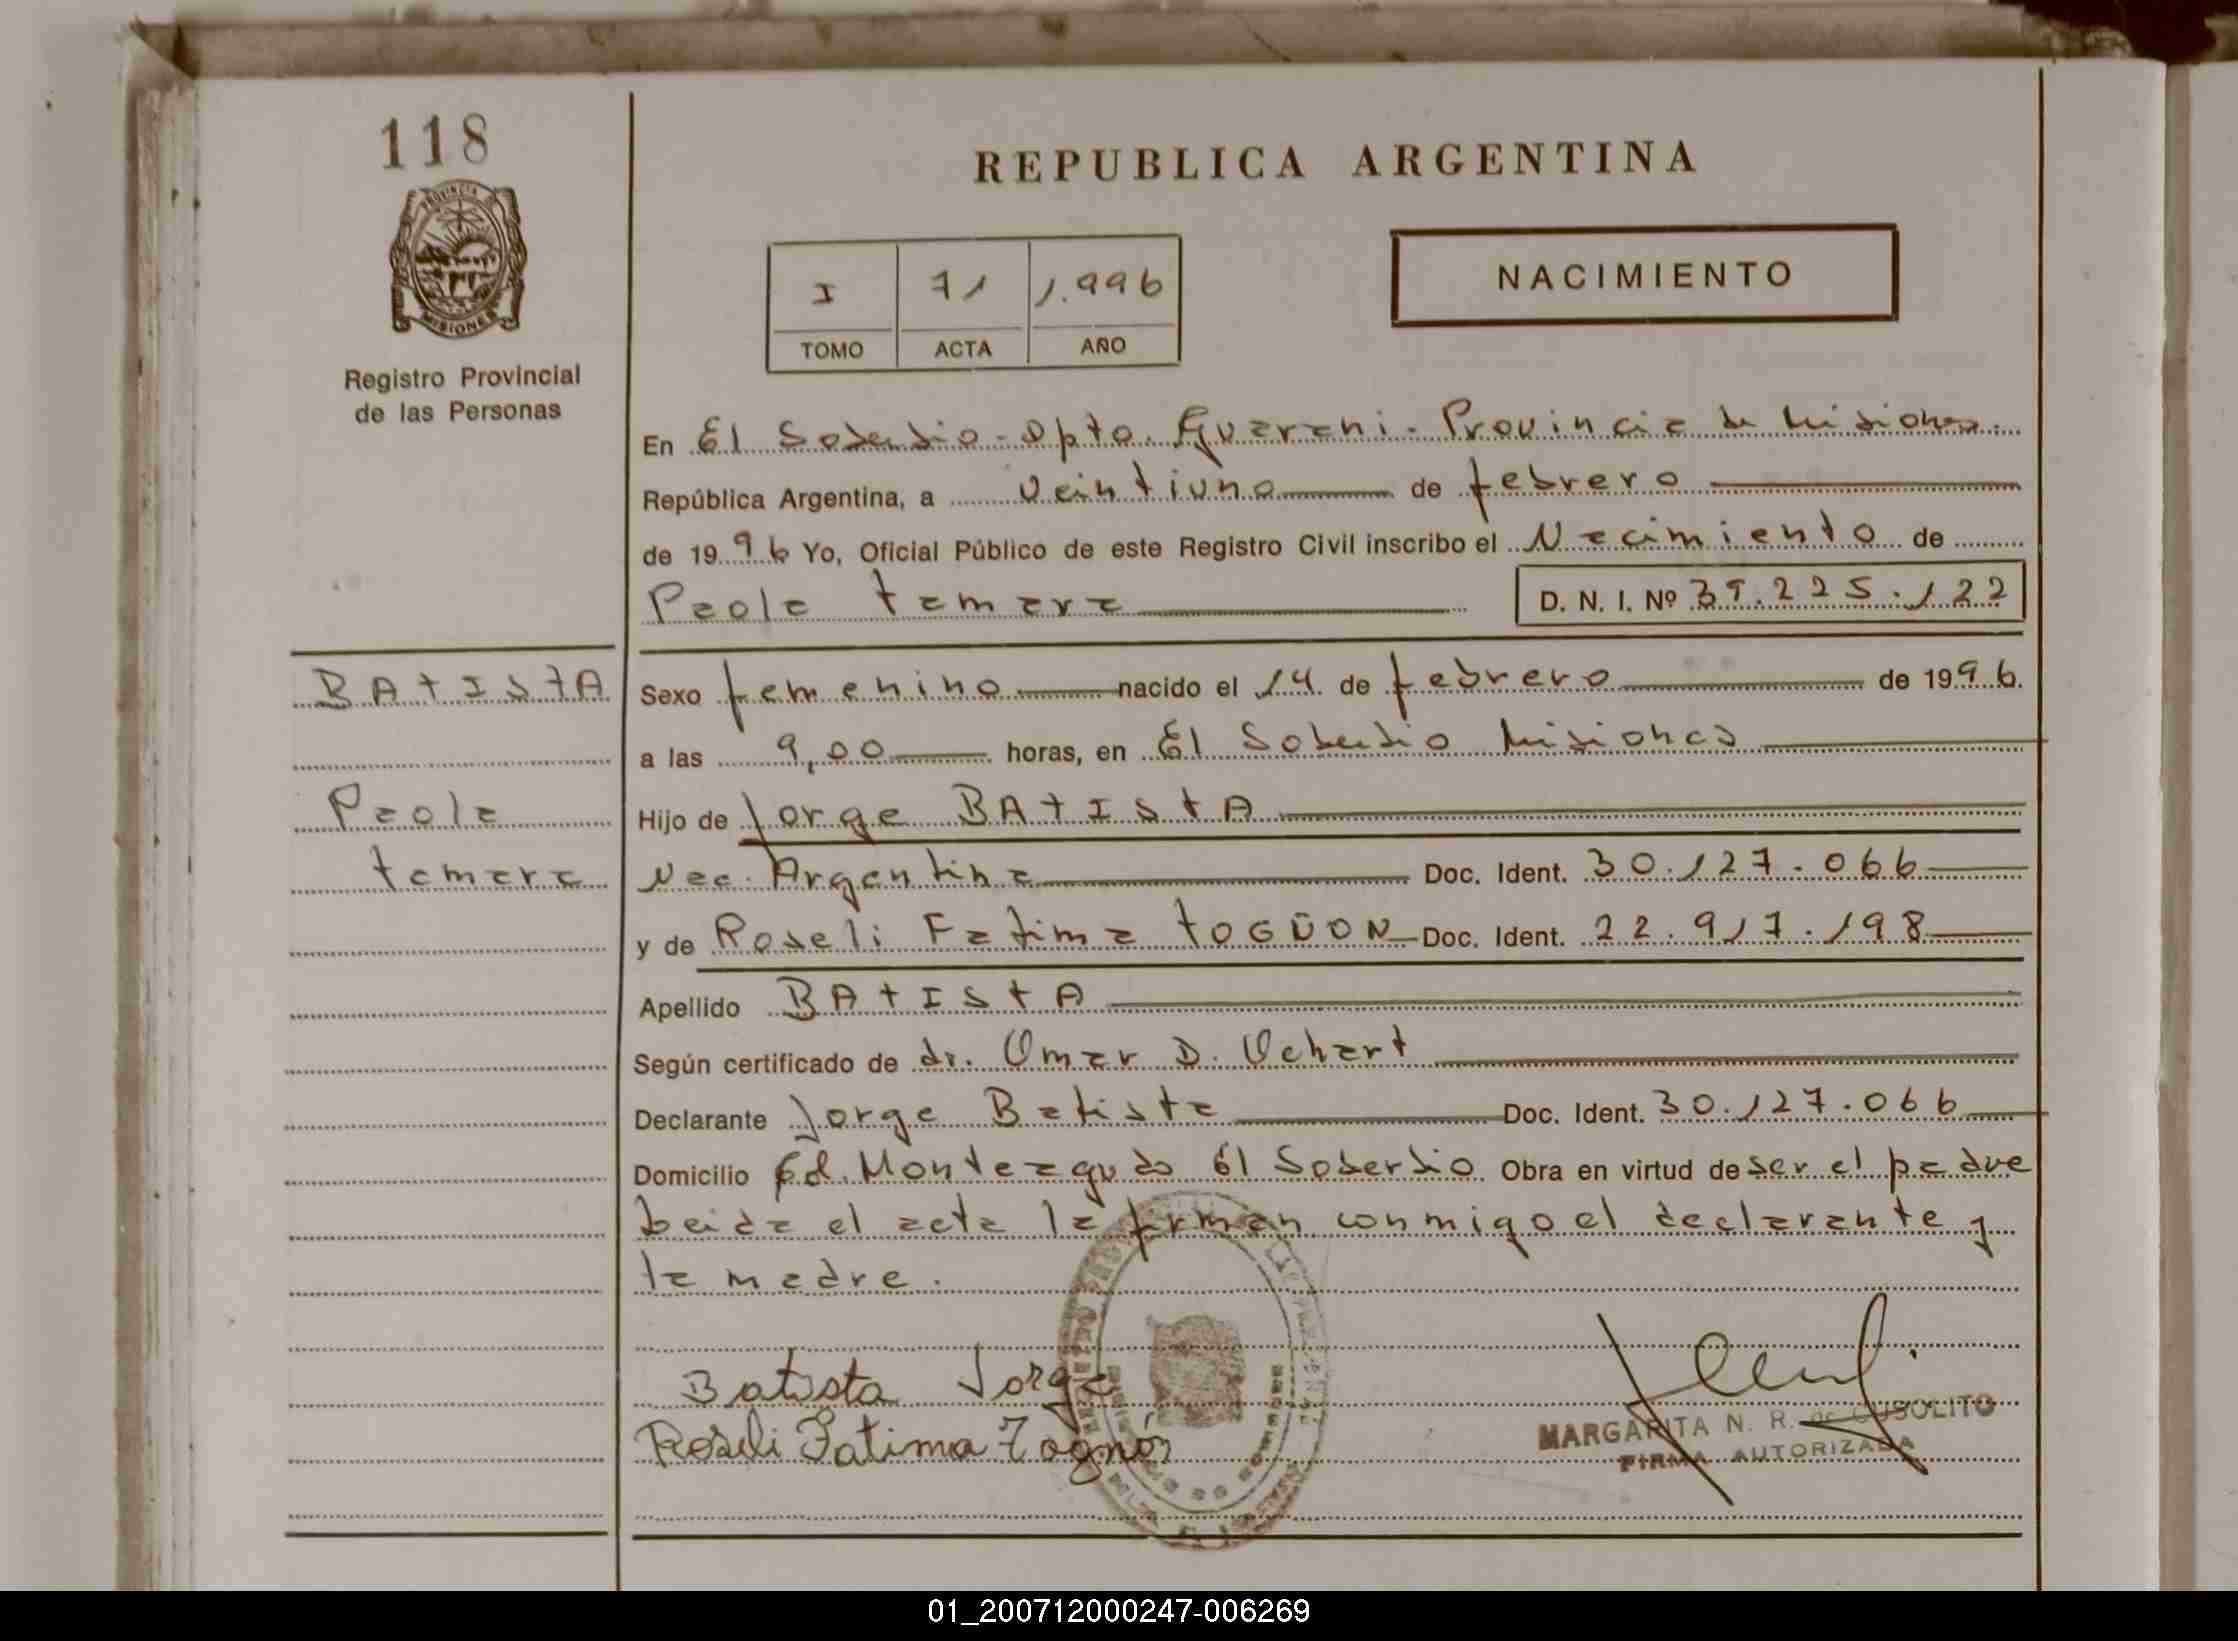 118
REPUBLICA ARGENTINA
PROVINCIA
MISIONES
Registro Provincial
de las Personas
I 71 1.996
TOMO ACTA AÑO
NACIMIENTO
En El Soberbio - Dpto. Guarani - Provincia de Misiones.
República Argentina, a veintiuno de febrero
de 1996 Yo, Oficial Público de este Registro Civil inscribo el Nacimiento de
Paola tamara D. N. I. Nº 39.225.122
BATISTA
Paola
tamara
Sexo femenino nacido el 14 de febrero de 1996.
a las 9,00 horas, en El Soberbio Misiones
Hijo de Jorge BATISTA
Nac. Argentina Doc. Ident. 30.127.066
y de Roseli Fatima TOGÑON Doc. Ident. 22.917.198
Apellido BATISTA
Según certificado de dr. Omar D.
Declarante Jorge Batista Doc. Ident. 30.127.066
Domicilio Monteagudo El Soberbio Obra en virtud de ser el padre
Leida el acta la firman conmigo el declarante y
la madre.
Batista Jorge
Roseli Fatima Tognón
MARGARITA N. R. de CUSOLITO
FIRMA AUTORIZADA
01_200712000247-006269